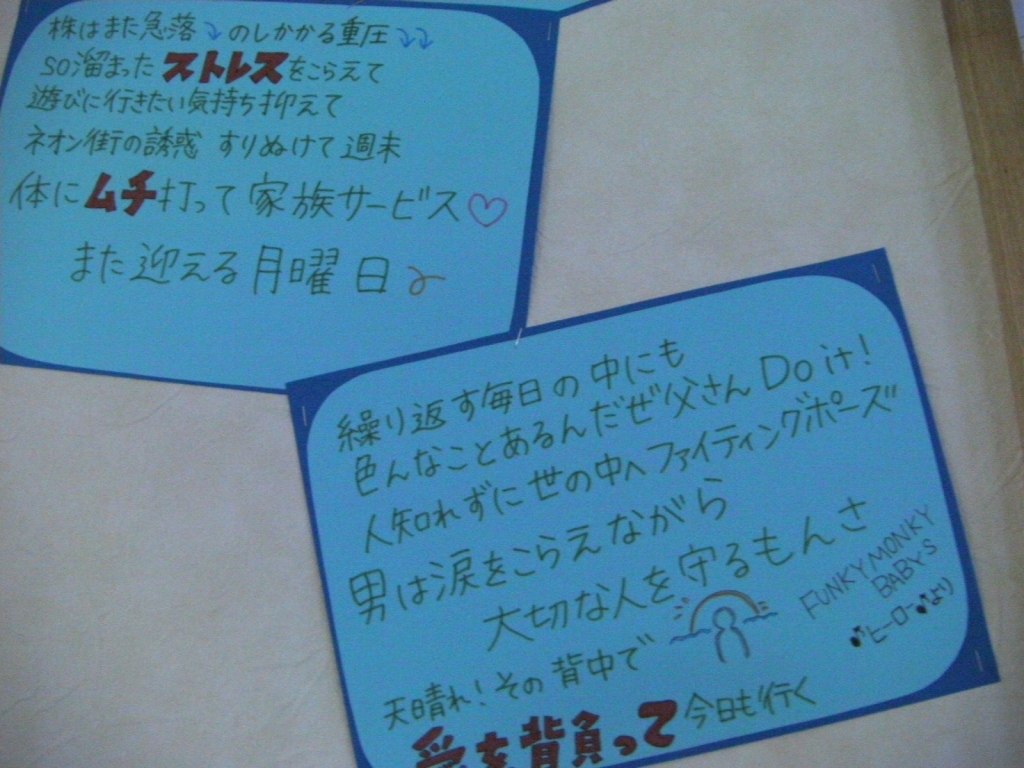 株はまた急落⤵のしかかる重圧⤵⤵
so溜まったストレスをこらえて
遊びに行きたい気持ち抑えて
ネオン街の誘惑 すりぬけて週末
体にムチ打って家族サービス♡
また迎える月曜日
繰り返す毎日の中にも
色んなことあるんだぜ父さん Do it!
人知れずに世の中へファイティングポーズ
男は涙をこらえながら
大切な人を守るもんさ
天晴れ!その背中で
愛を背負って今日も行く
FUNKY MONKY
BABYS
♪ヒーロー♪より